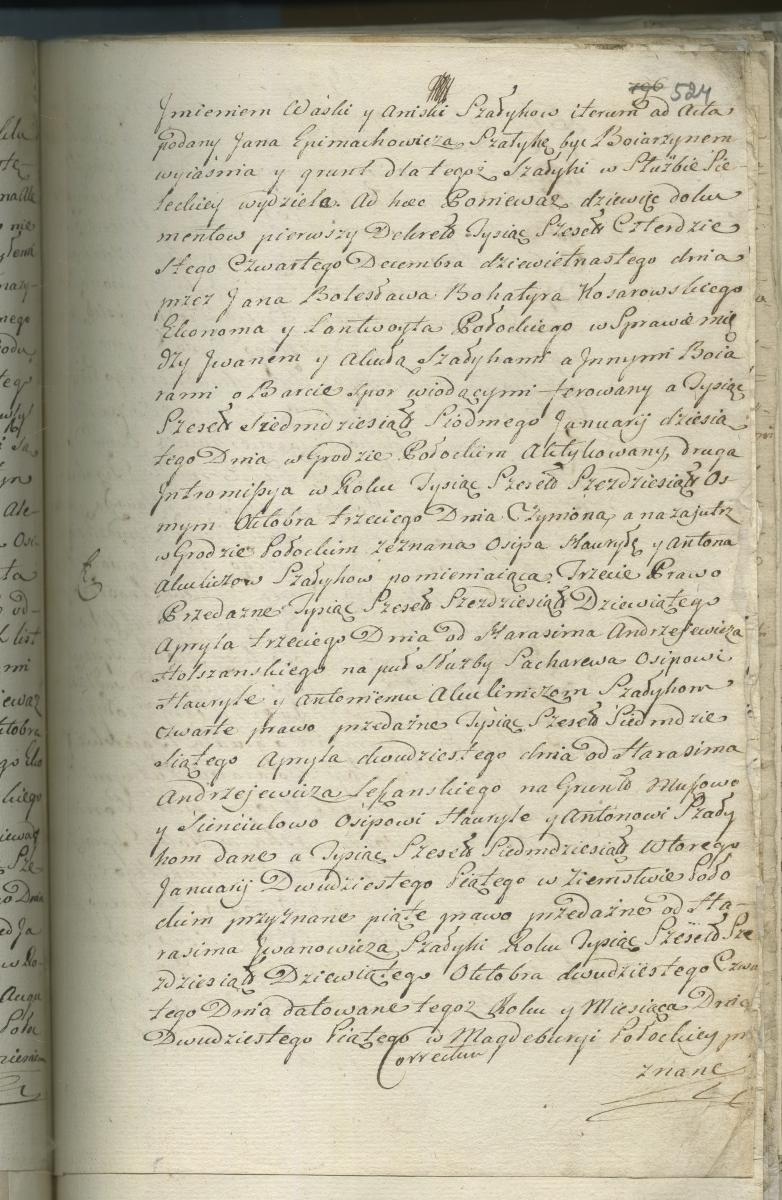 796 524
Jmieniem Waśki y Aniśki Szałyhow iterum ad Acta
podany Jana Epimachowicza Szałyhę być Boiarzynem
wyiaśnia y grunt dla tegoż Szałyhi w Służbie Sie-
leckiey wydziela. Ad hoc Ponieważ dziewięć doku
mentow pierwszy Dekret Tysiąc Szesetł Czterdzie
stego Czwartego Decembra dziewietnastego dnia
przez Jana Bolesława Bohatyra Kosarowskiego
Ekonoma y Lantwoyta Połockiego w Sprawie mię
dzy Jwanem y Akułą Szałyhami a Jnnymi Boia
rami o Barcie Spor wiodącymi ferowany a Tysiąc
Szesetł Siedmdziesiątł Siodmego Januarij dziesią
tego Dnia w Grodzie Połockim Aktykowany, druga
Jntromissya w Roku Tysiąc Szesetł Szezdziesiątł Os-
mym Oktobra trzeciego Dnia Czyniona, a na zajutrz
w Grodzie Połockim zeznana Osipa Hauryłę y Antona
Akuliczow Szałyhow pomieniaiąca. Trzecie Prawo
Przedazne Tysiąc Szesetł Szezdziesiątł Dziewiątego
Apryla trzeciego Dnia od Harasima Andrzejewicza
Holszanskiego na puł Służby Sacharewa Osipowi
Hauryle y Antoniemu Akuliniczom Szałyhom
czwarte prawo przedażne Tysiąc Szesetł Siedmdzie
siątego Apryla dwudziestego dnia od Harasima
Andrzejewicza na Grunt
y Osipowi Hauryle y Antonowi Szały
hom dane a Tysiąc Szesetł Siedmdziesiątł wtorego
Januarij Dwudziestego Piątego w Ziemstwie Poło
ckim przyznane piąte prawo przedażne od Ha-
rasima Jwanowicza Szałyhi Roku Tysiąc Szesetł Sze
zdziesiątł Dziewiątego Oktobra dwudziestego Czwa
tego Dnia datowane tegoz Roku y Miesiąca Dnia
Dwudziestego Piątego w Magdeburyi Połockiey pr
Correctum
znane